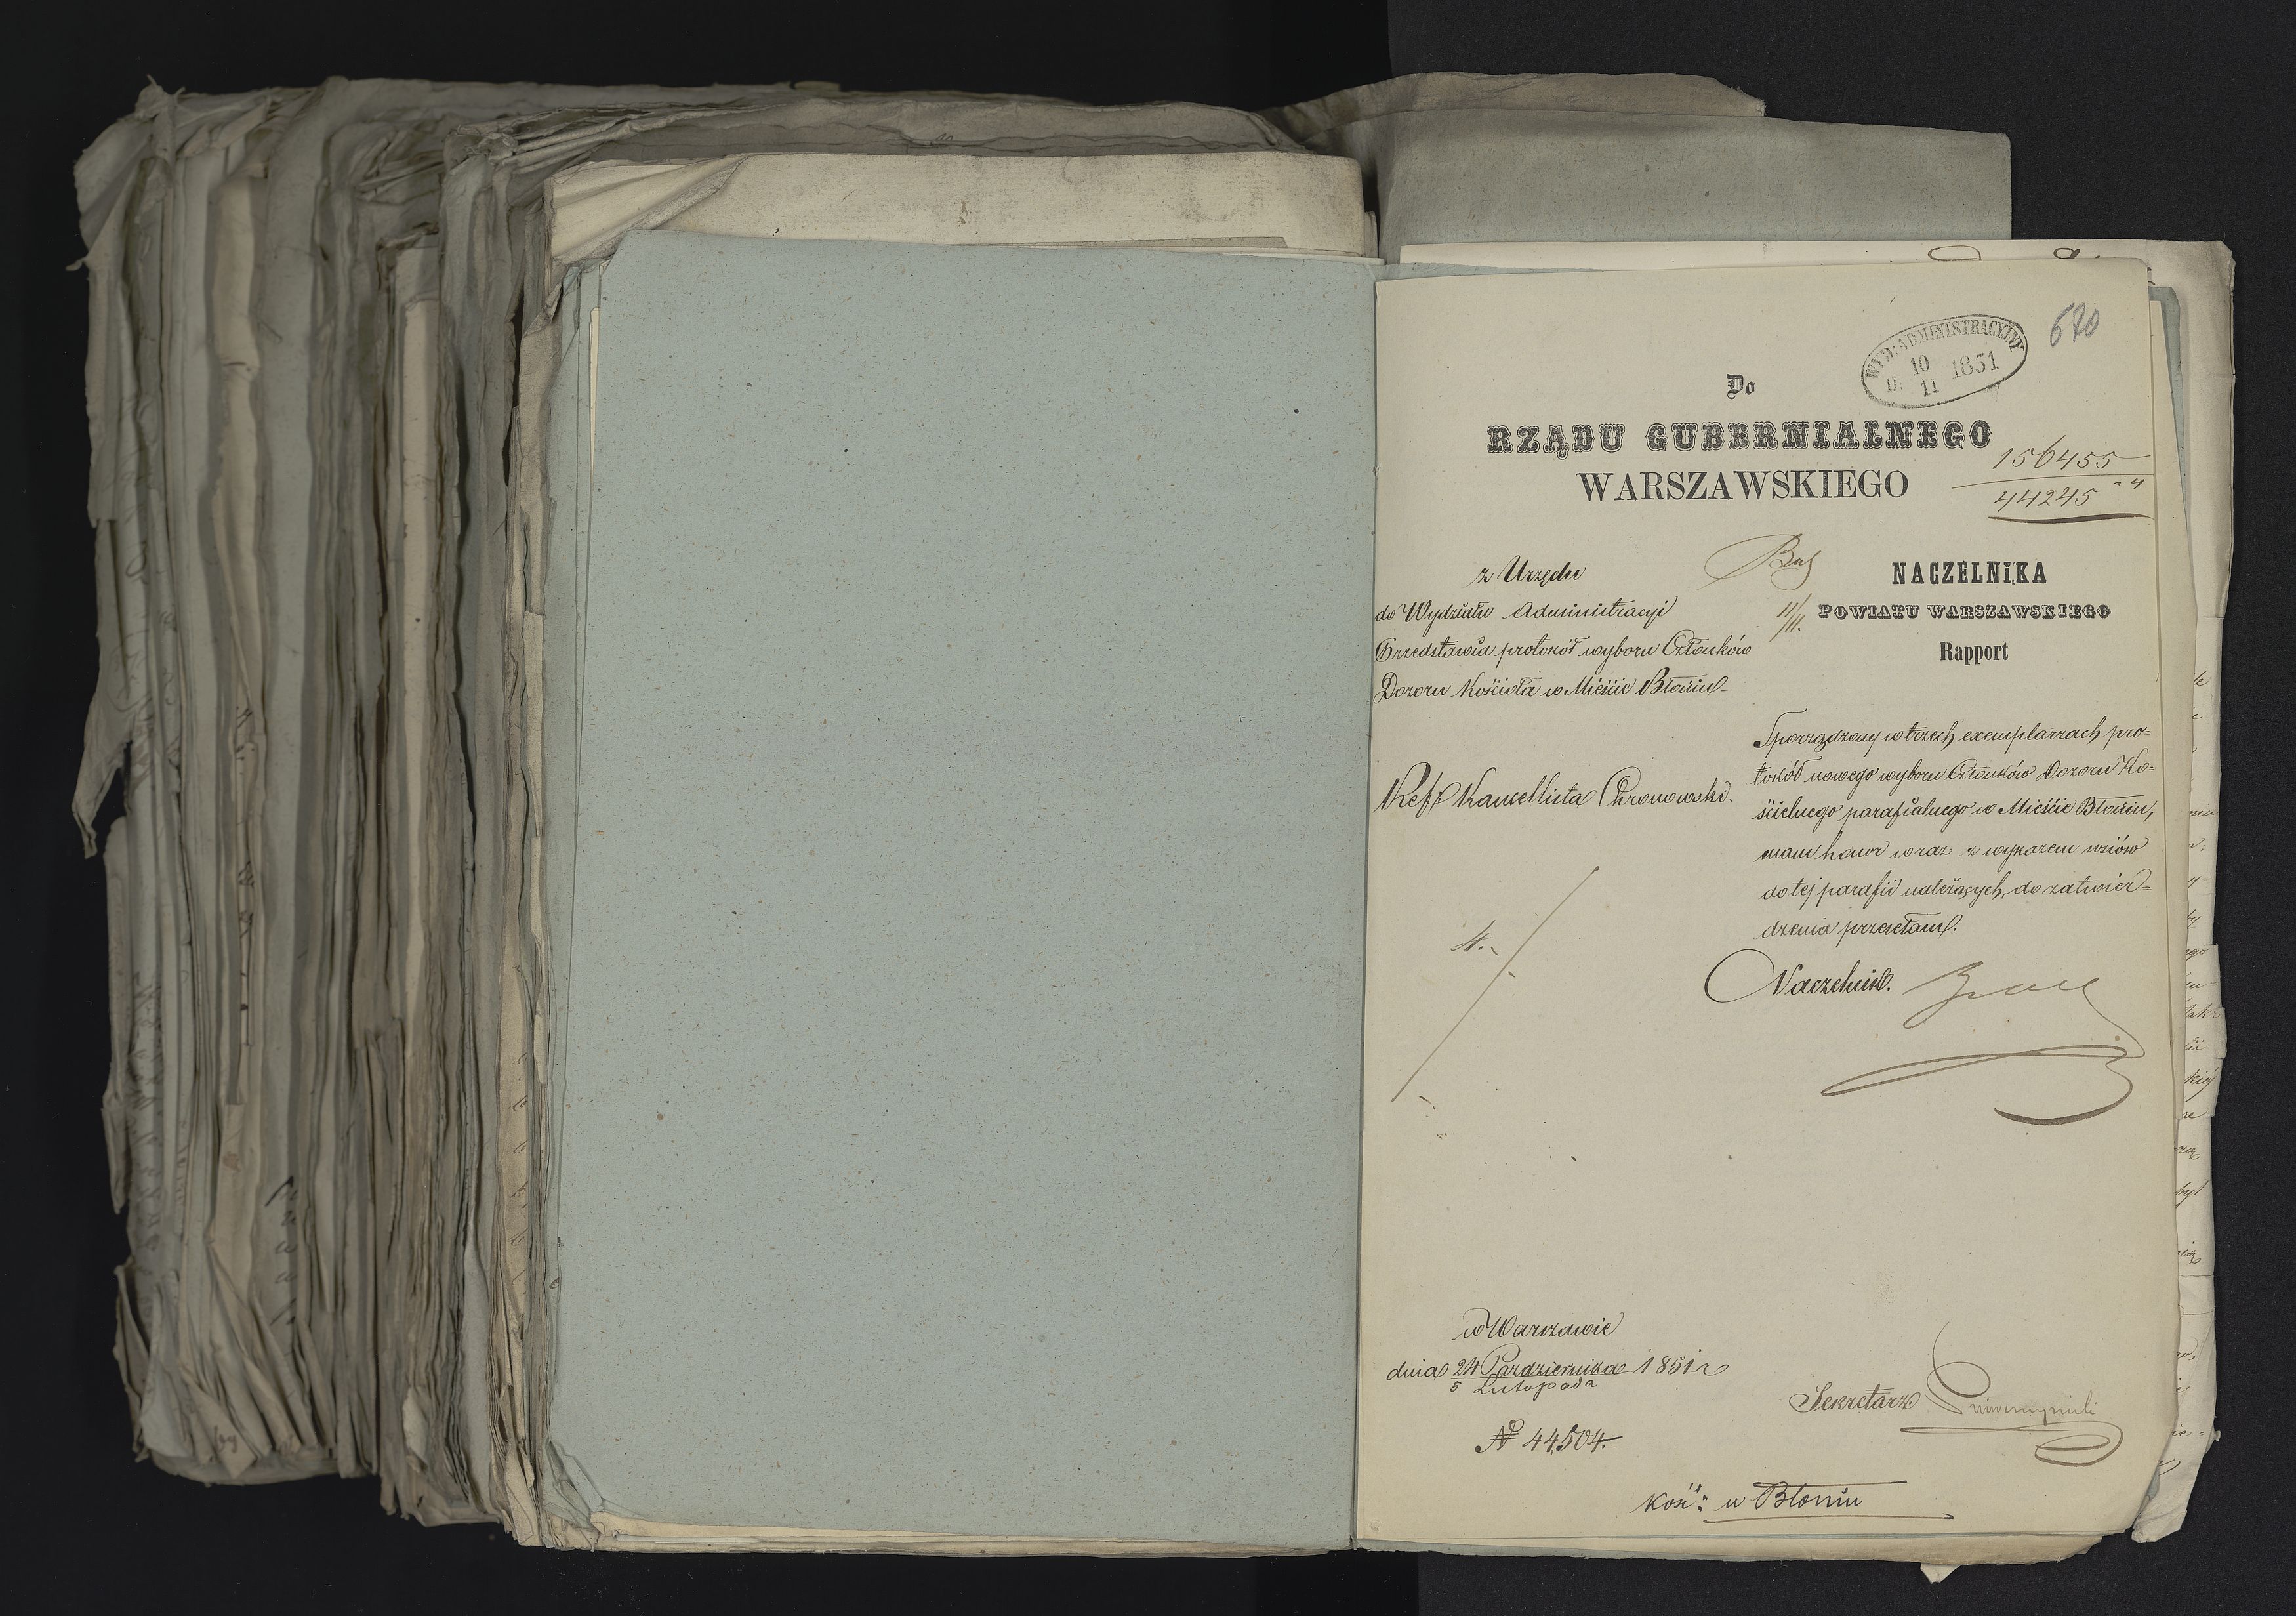 670
WYD: ADMINISTRACYJNY
D. 10/11 1851
Do
RZĄDU GUBERNIALNEGO
WARSZAWSKIEGO
156455
44245
z Urzędu
do Wydziału Administracyi
Przedstawia protokół wyboru Członków
Dozoru Kościoła w Mieście Błoniu
Reff Kancellista Chronowski.
11/11.
NACZELNIKA
POWIATU WARSZAWSKIEGO
Rapport
Sporządzony w trzech exemplarzach pro=
tokół nowego wyboru Członków Dozoru Ko=
ścielnego parafialnego w Mieście Błoniu,
mam honor wraz z wykazem wsiów
do tej parafii należących, do zatwier=
dzenia przesełam.
Naczelnik.
w Warszawie
dnia 24 Października 1851 r
5 Listopada
№ 44,504.
Sekretarz
Kość: w Błoniu